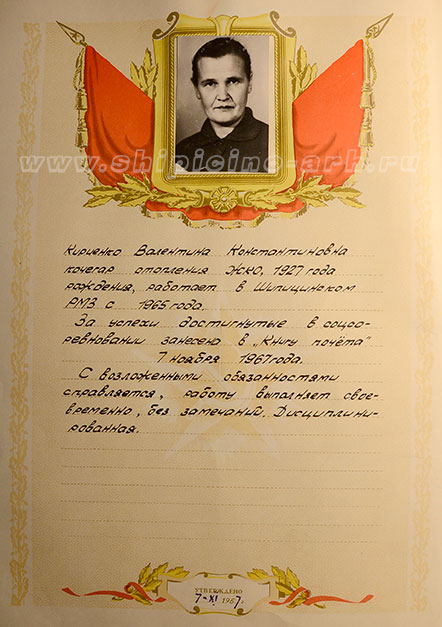 www.shipicino-arh.ru
Кириенко Валентина Константиновна
кочегар отопления ЖКО, 1927 года
рождения, работает в Шипицинском
РМЗ с 1965 года.
За успехи достигнутые в соцсо-
ревновании занесено в „Книгу почёта"
7 ноября 1967 года.
С возложенными обязанностями
справляется, работу выполняет свое-
временно, без замечаний. Дисциплини-
рованная.
УТВЕРЖДЕНО
7-XI 1967г.